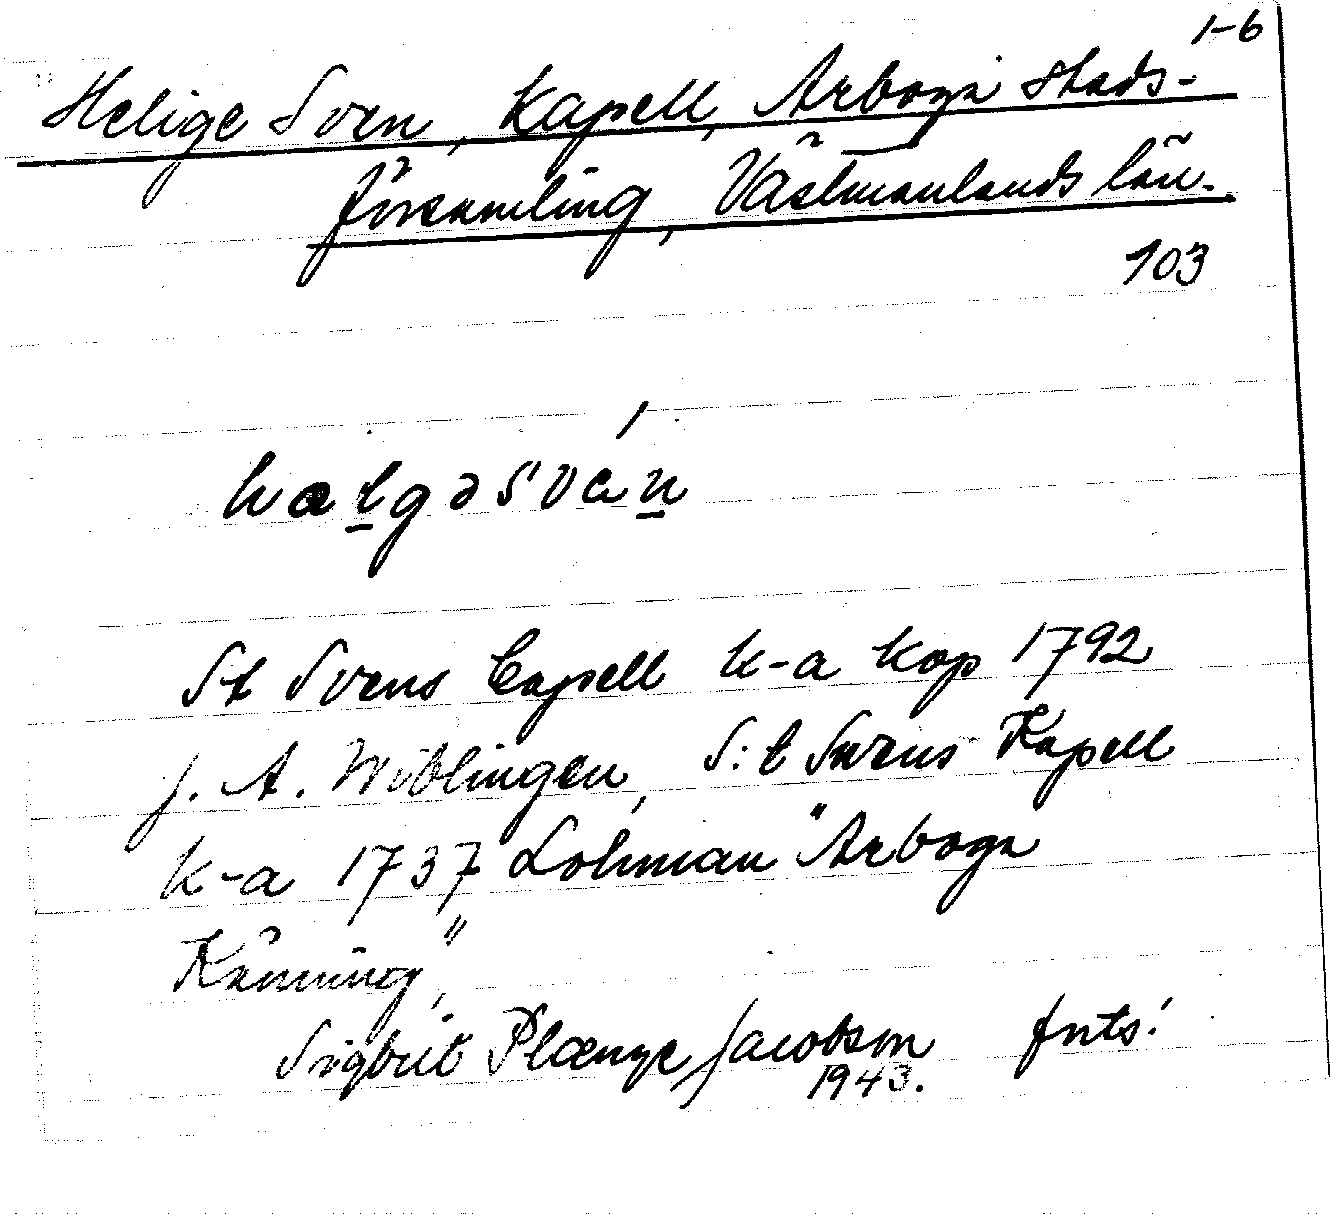 1-6
Helige Sven, Kapell, Arboga stads-
församling, Västmanlands län.
103
hælgəsvän
St Svens Capell k-a kop 1792
J. A. Wiblingen, S:t Swens Kapell
k-a 1737 Lohman "Arboga
Känning",
Sigbrit Plænge Jacobson frts!
1943.